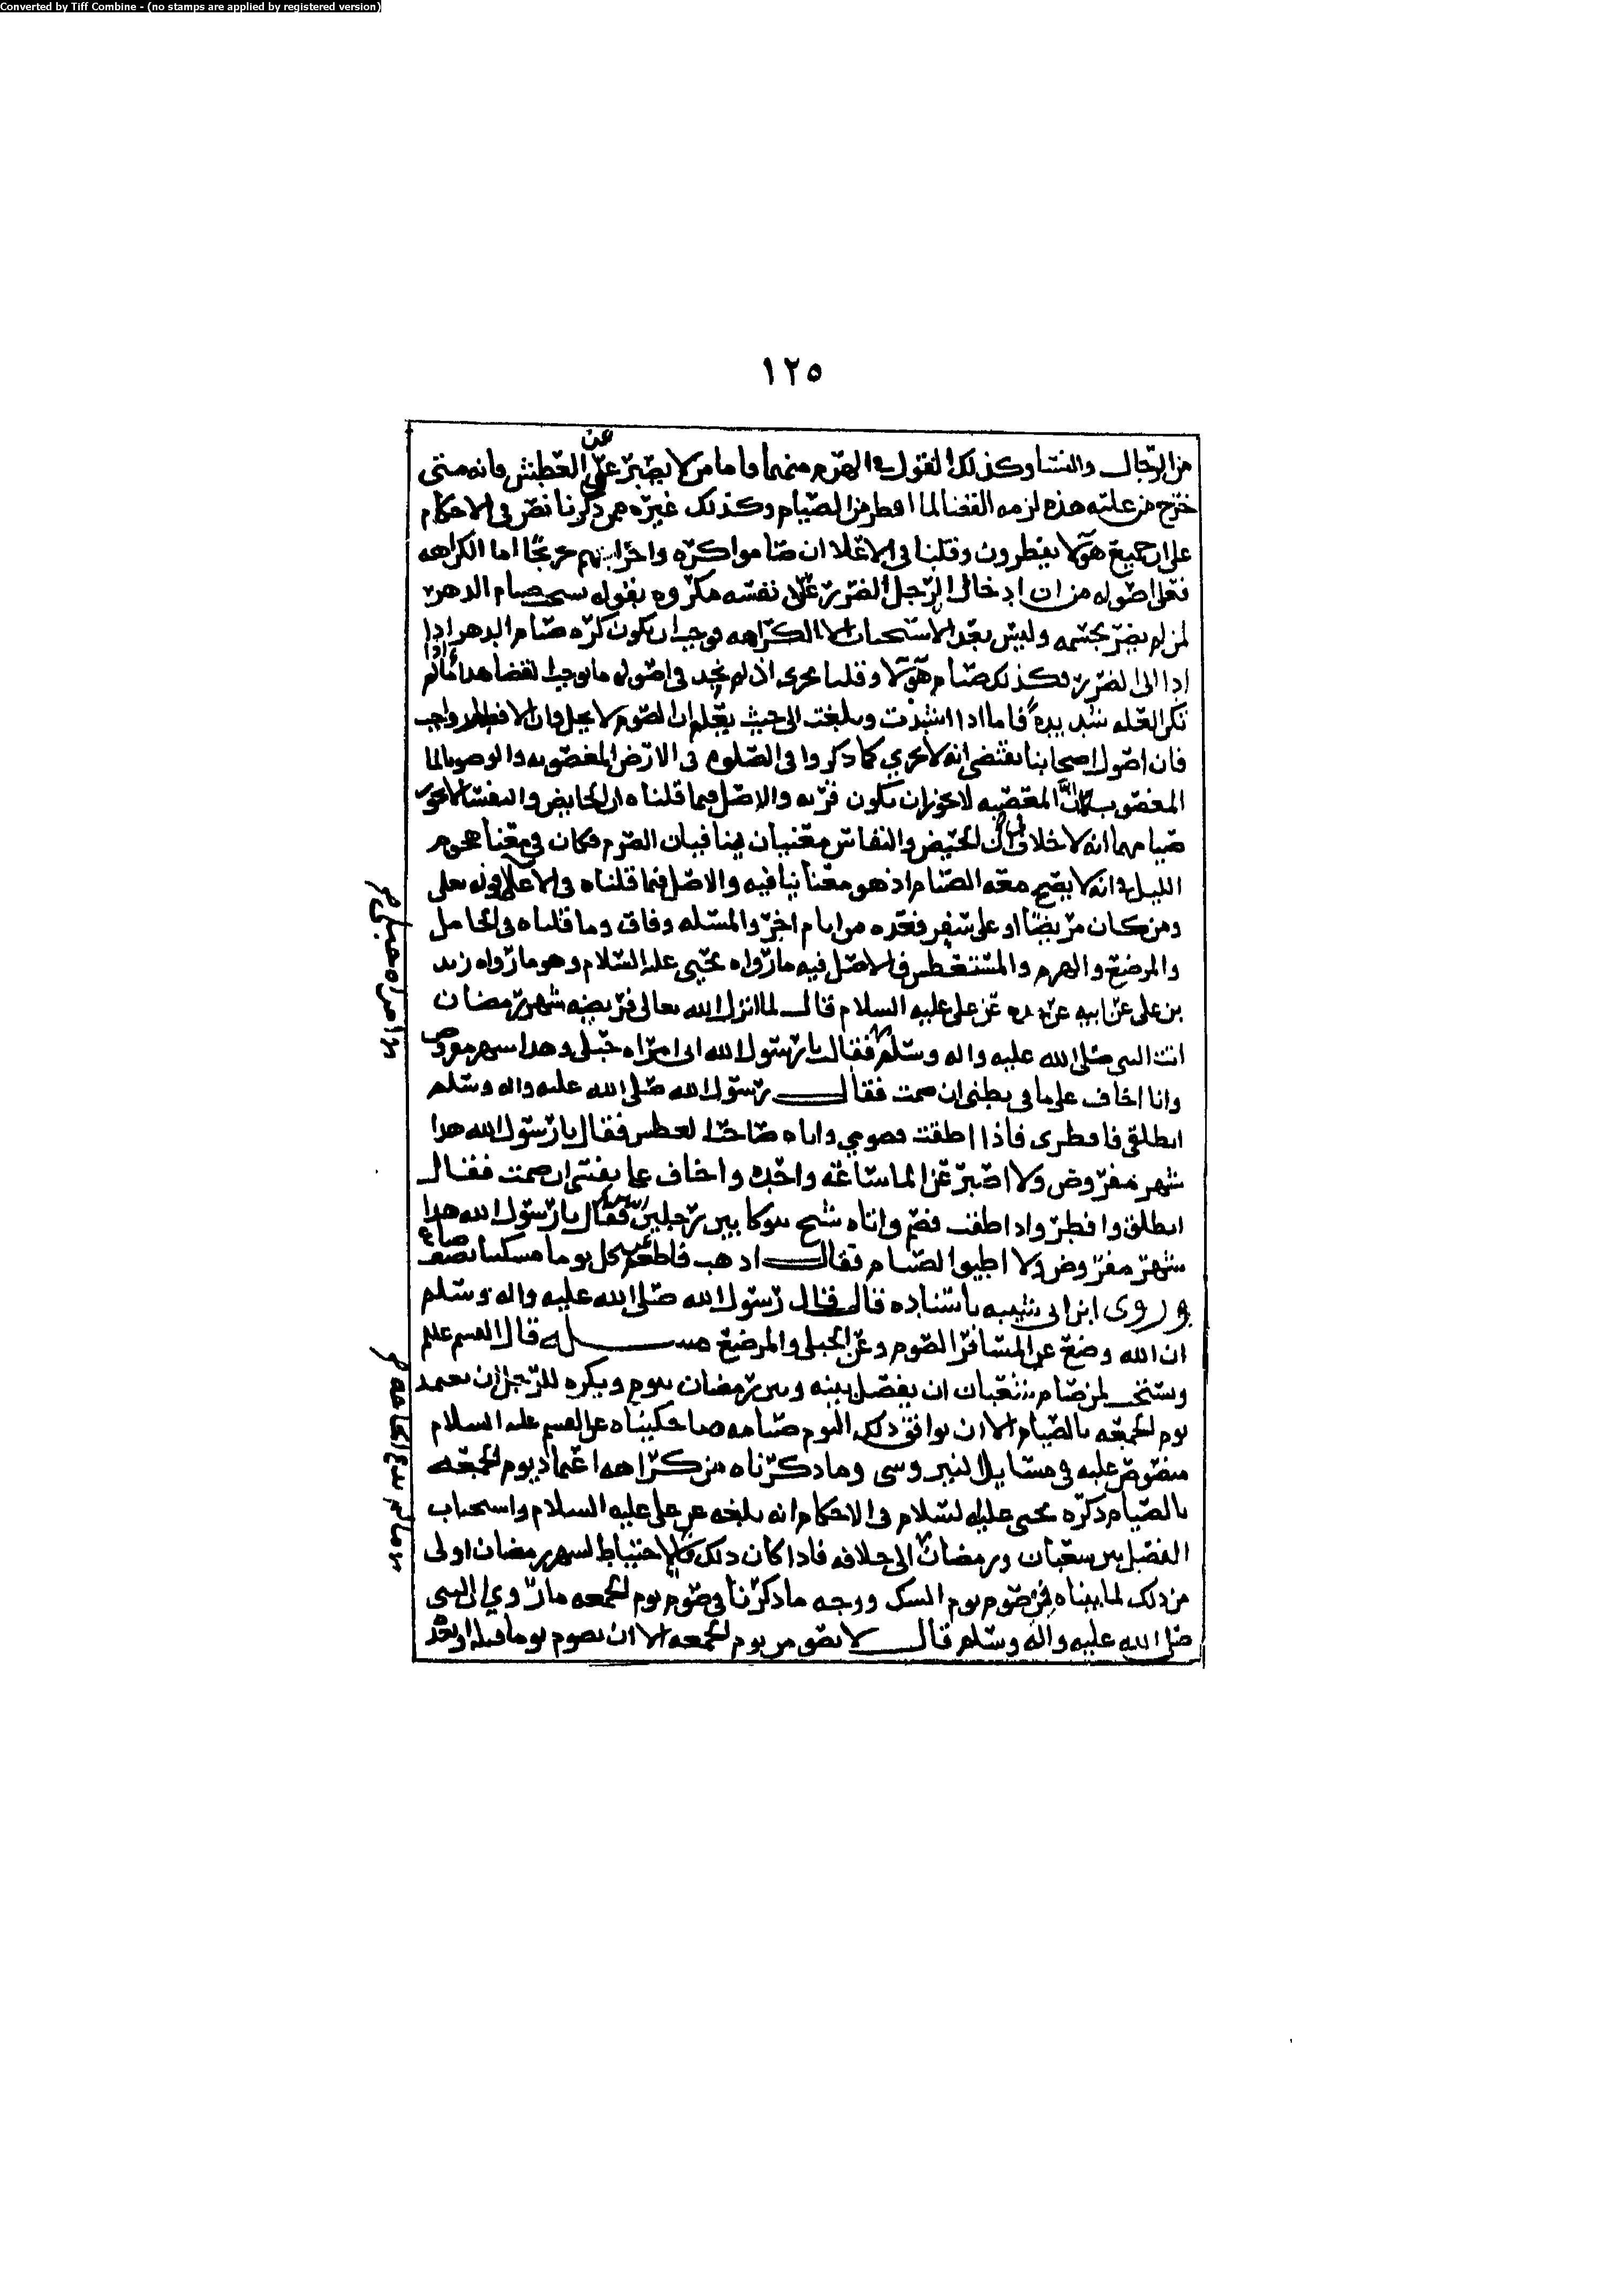 Converted by Tiff Combine - (no stamps are applied by registered version)
١٢٥
من الرجال والنسا وكذلك القول في الهرم منهما فاما من لا يصبر على العطش فانه متى
عن
خرج من علته هذه لزمه القضا لما افطر من الصيام وكذلك غيره ممن ذكرنا نص في الاحكام
على ان جميع هولا يفطرون وقلنا في الاعلا ان صاموا كره واجزا بهم تخريجا اما الكراهه
فعلى اصوله من ان ادخال الرجل الضرر على نفسه مكروه بقوله يستحب صيام الدهر
لمن لم يضر بجسمه وليس بعد الاستحباب الا الكراهه فوجب ان يكون كره صيام الدهر اذا
ادا الى الضرر فكذلك صيام هولا وقلنا يجزي اذ لم نجد في اصوله ما يوجب القضا هذا اذا لم
تكن العله شديده فاما اذا اشتدت وبلغت الى حيث يعلم ان الصوم لا يحل وان الافطار واجب
فان اصول اصحابنا تقتضي انه لا يجزي كما ذكروا في الصلوه في الارض المغصوبه والوضو بالما
المغصوب لان المعصيه لا يجوز ان تكون قربه والاصل فيما قلناه ان الحايض والنفسا لا يجوز
صيامهما انه لا خلاف في ان الحيض والنفاس معنيان ينافيان الصوم فكان في معناهم هجوم
الليل في انه لا يصح معه الصيام اذ هو معنا ينافيه والاصل فيما قلناه في الاعلا قوله تعالى
ومن كان مريضا او على سفر فعده من ايام اخر والمسئله وفاق وما قلناه في الحامل
والمرضع والهرم والمستعطش فالاصل فيه ما رواه يحيى عليه السلام وهو ما رواه زيد
بن علي عن ابيه عن جده عن علي عليه السلام قال لما انزل الله تعالى فريضه شهر رمضان
اتت النبي صلى الله عليه واله وسلم امراه فقالت يا رسول الله اني امراه حبلى وهذا شهر مفروض
وانا اخاف على ما في بطني ان صمت فقال رسول الله صلى الله عليه واله وسلم
انطلقي فافطري فاذا اطقت فصومي واتاه صاحب العطش فقال يا رسول الله هذا
شهر مفروض ولا اصبر عن الما ساعه واحده واخاف على نفسي ان صمت فقال
انطلق وافطر واذا اطقت فصم واتاه شيخ يتوكا بين رجلين فقال يا رسول الله هذا
شهر مفروض ولا اطيق الصيام فقال اذهب فاطعم عن كل يوم مسكينا نصف صاع
وروى ابن ابي شيبه باسناده قال قال رسول الله صلى الله عليه واله وسلم
ان الله وضع عن المسافر الصوم وعن الحبلى والمرضع مسئله قال القسم عليلم
ويستحب لمن صام شعبان ان يفصل بينه وبين رمضان بيوم ويكره للرجل ان يعتمد
يوم الجمعه بالصيام الا ان يوافق ذلك اليوم صيامه ما حكيناه عن القسم عليه السلام
منصوص عليه في مسايل النيروسي وما ذكرناه من كراهه اعتماد يوم الجمعه
بالصيام ذكره يحيى عليه السلام في الاحكام انه بلغه عن علي عليه السلام واستحباب
الفصل بين شعبان ورمضان الى خلافه فاذا كان ذلك فالاحتياط لشهر رمضان اولى
من ذلك لما بيناه في صوم يوم الشك ووجه ما ذكرنا في صوم يوم الجمعه ما روي ان النبي
صلى الله عليه واله وسلم قال لا تصومن يوم الجمعه الا ان تصوم يوما قبله او بعده